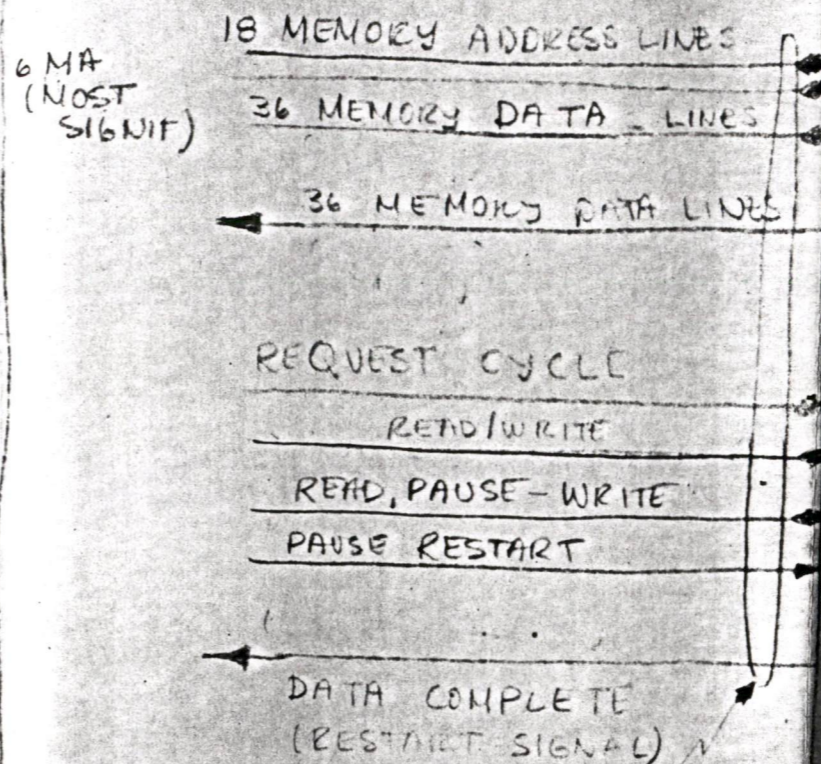 18 MEMORY ADDRESS LINES
6 MA
(MOST
SIGNIF)
36 MEMORY DATA LINES
36 MEMORY DATA LINES
REQUEST CYCLE
READ/WRITE
READ, PAUSE-WRITE
PAUSE RESTART
DATA COMPLETE
(RESTART SIGNAL)